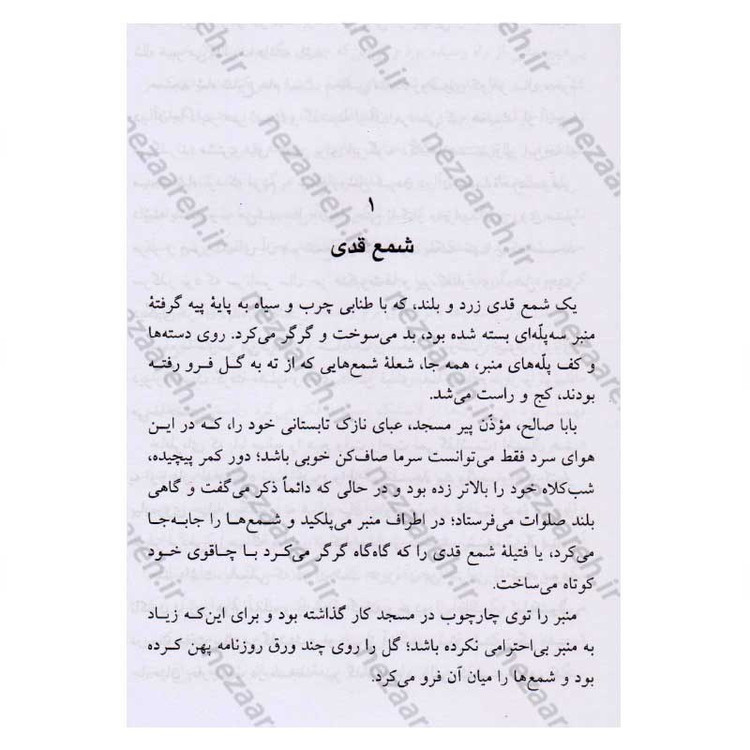 ۱
شمع قدی
یک شمع قدی زرد و بلند، که با طنابی چرب و سیاه به پایهٔ پیه گرفتهٔ
منبر سه‌پلّه‌ای بسته شده بود، بد می‌سوخت و گرگر می‌کرد. روی دسته‌ها
و کف پلّه‌های منبر، همه جا، شعلهٔ شمع‌هایی که از ته به گل فرو رفته
بودند، کج و راست می‌شد.
بابا صالح، مؤذّن پیر مسجد، عبای نازک تابستانی خود را، که در این
هوای سرد فقط می‌توانست سرما صاف‌کن خوبی باشد؛ دور کمر پیچیده،
شب‌کلاه خود را بالاتر زده بود و در حالی که دائماً ذکر می‌گفت و گاهی
بلند صلوات می‌فرستاد؛ در اطراف منبر می‌پلکید و شمع‌ها را جابه‌جا
می‌کرد، یا فتیلهٔ شمع قدی را که گاه‌گاه گرگر می‌کرد با چاقوی خود
کوتاه می‌ساخت.
منبر را توی چارچوب در مسجد کار گذاشته بود و برای این‌که زیاد
به منبر بی‌احترامی نکرده باشد؛ گل را روی چند ورق روزنامه پهن کرده
بود و شمع‌ها را میان آن فرو می‌کرد.
nezaareh.ir
nezaareh.ir
nezaareh.ir
nezaareh.ir
nezaareh.ir
nezaareh.ir
nezaareh.ir
nezaareh.ir